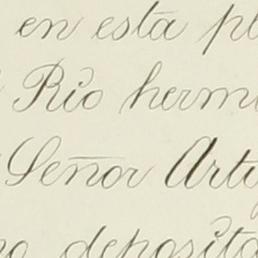 en esta pl
Rio herm
Señor Artu
no deposita